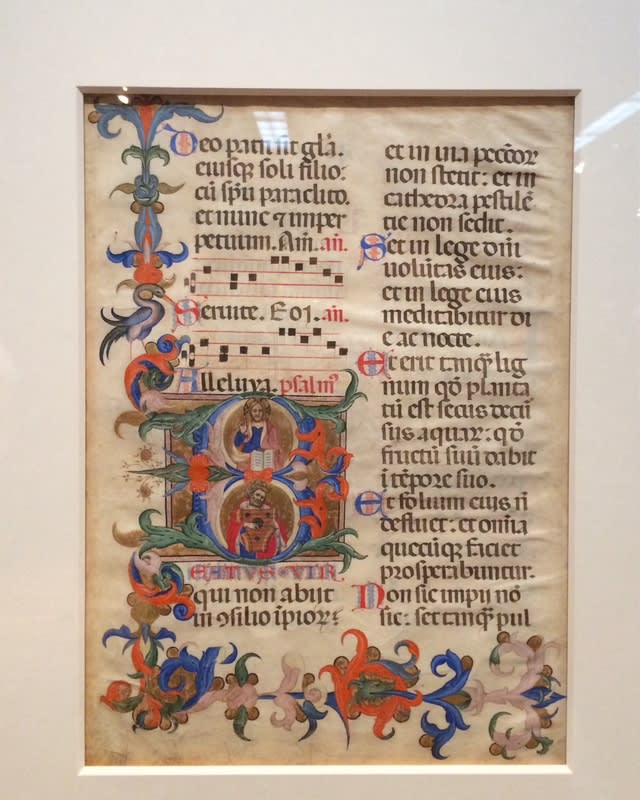 Deo patri sit gl̃a.
eiusq̃ soli filio:
cũ sp̃u paraclito.
et nunc ⁊ imper
petuum. Am̃. añ.
Seruite. E O I. añ.
Alleluya. psalm᷒
BEATVS VIR
qui non abijt
in ꝯsilio ĩpior᷑:
et in uia pecc̃or
non stetit: et in
cathedra pestilẽ
tie non sedit.
Set in lege dñi
uolũtas eius:
et in lege eius
meditabitur di
e ac nocte.
Et erit tamq̃ lig
num qđ planta
tũ est secus decũ
sus aquar᷑: qđ
fructũ suũ dabit
ĩ tẽpore suo.
Et folium eius ñ
defluet: et om̃ia
quecũq̃ faciet
prosperabuntur.
Non sic impij nõ
sic: set tamq̃ pul